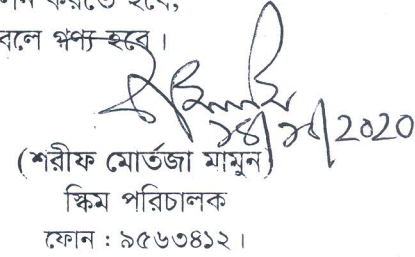 করতে হবে,
বলে গণ্য হবে।
2020
(শরীফ মোর্তজা মামুন)
স্কিম পরিচালক
ফোন : ৯৫৬৩৪১২।